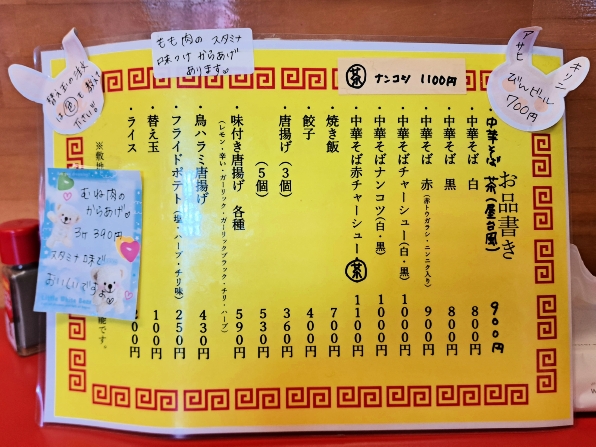 もも肉の スタミナ
味つけ からあげ
あります。
㊎ ナンコツ 1100円
アサヒ
キリン
びんビール
700円
替え玉の注文
は色も教えて
ださい!!
お品書き
中華そば 茶(屋台風) 900円
・中華そば 白 800円
・中華そば 黒 800円
・中華そば 赤(赤トウガラシ・ニンニク入り) 900円
・中華そばチャーシュー(白・黒) 1000円
・中華そばナンコツ(白・黒) 1000円
・中華そば赤チャーシュー 茶 1100円
・焼き飯 700円
・餃子 400円
・唐揚げ(3個) 360円
(5個) 530円
・味付き唐揚げ 各種 590円
(レモン・辛い・ガーリック・ガーリックブラック・チリ・ハーブ)
・鳥ハラミ唐揚げ 430円
・フライドポテト(塩・ハーブ・チリ味) 250円
・替え玉 100円
・ライス 200円
※敷地
能です。
むね肉の
からあげ。
3ケ 390円
スタミナ味で
おいしいですょ